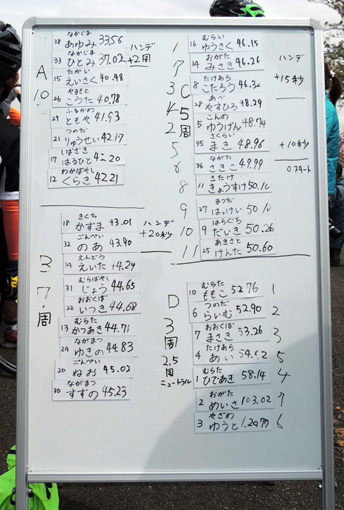 A
10
なかじま
18 あゆみ 33.56
なかじま
33 ひとみ 37.02 +2周
ハンデ
たかい
15 えいさく 40.48
やまもと
26 こうた 40.78
ふるかわ
29 ともや 41.93
つのだ
21 りゅうせい 42.17
しばさき
17 はるひと
わかばやし
12 くらき 42.21
3
7
周
きくち
18 かずま 43.01
ハンデ
+20秒
ごんぺい
32 のあ 43.90
えんどう
34 えいた 44.29
むらばやし
31 じょう 44.65
おおくぼ
22 いつき 44.68
むらた
13 かつあき 44.71
ながまつ
24 ゆきの 44.83
ごんぺい
20 ねお 45.02
ながまつ
30 すずの 45.23
C
5
周
2
周
むらい
1 16 ゆうさく 46.15
おがた
7 14 みさき 46.26
ハンデ
+15秒
たけあら
3 8 こたろう 46.34
あべ
4 28 やすひろ 48.29
こんの
2 5 ゆうげん 48.74
さくらい
5 35 まき 48.96
+10秒
ながた
6 36 さきこ 49.99
0スタート
さたけ
8 11 きょうすけ
まつだ
9 27 はっけい
はらぐち
10 9 だいき 50.26
あきさと
11 25 けんた 50.60
D
3
周
2.5
周
ニュートラル
むらた
10 ももこ 52.76 1
つのだ
6 らいむ 52.90 2
おおくぼ
7 まさき 53.26 3
たけあら
4 あい 5
むらた
1 ひであき 58.14 4
おがた
2 めいさ 1.03.02 7
やざわ
3 ゆうと 6